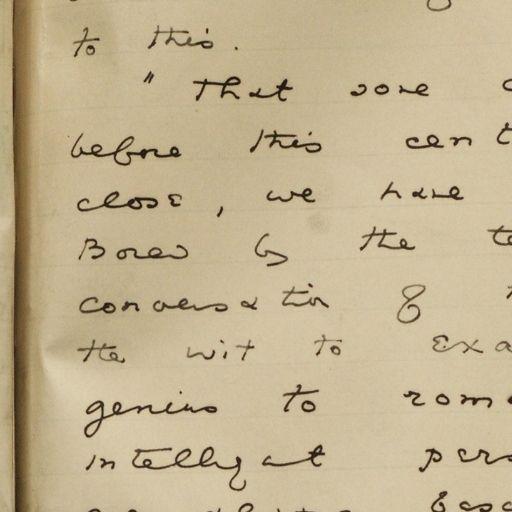 to this.
" That some
before this cent
close, we have
Bored by the te
conversation of
the wit to exa
genius to roma
intelligent pers